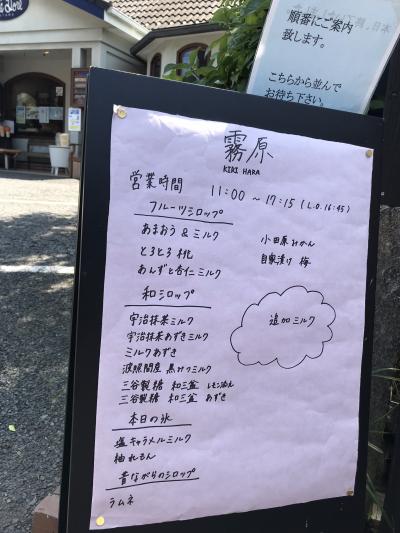 順番にご案内
致します。
こちらから並んで
お待ち下さい。
霧原
KIRI HARA
営業時間 11:00 ～ 17:15 (L.O.16:45)
フルーツシロップ
あまおう & ミルク
とろとろ桃
あんずと杏仁ミルク
小田原みかん
自家漬け 梅
和シロップ
宇治抹茶ミルク
宇治抹茶あずきミルク
ミルクあずき
波照間産 黒みつミルク
三谷製糖 和三盆 レモン
三谷製糖 和三盆 あずき
追加ミルク
本日の氷
塩キャラメルミルク
柚れもん
昔ながらのシロップ
ラムネ